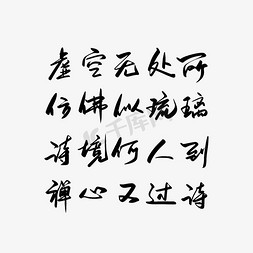 虚空无处所
仿佛似琉璃
诗境何人到
禅心又过诗
千库网